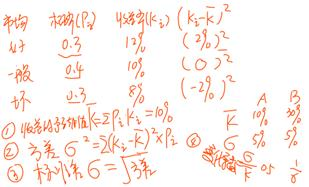 市场 概率(Pi) 收益率(Ki) (Ki-K̄)²
好 0.3 12% (2%)²
一般 0.4 10% (0)²
坏 0.3 8% (-2%)²
① 收益的预期值K̄=ΣPiKi=10%
② 方差 σ²=Σ(Ki-K̄)²×Pi
③ 标准差 σ=√方差
A B
K̄ 10% 30%
σ 5% 5%
④ 变化系数 σ/K̄ 0.5 1/6